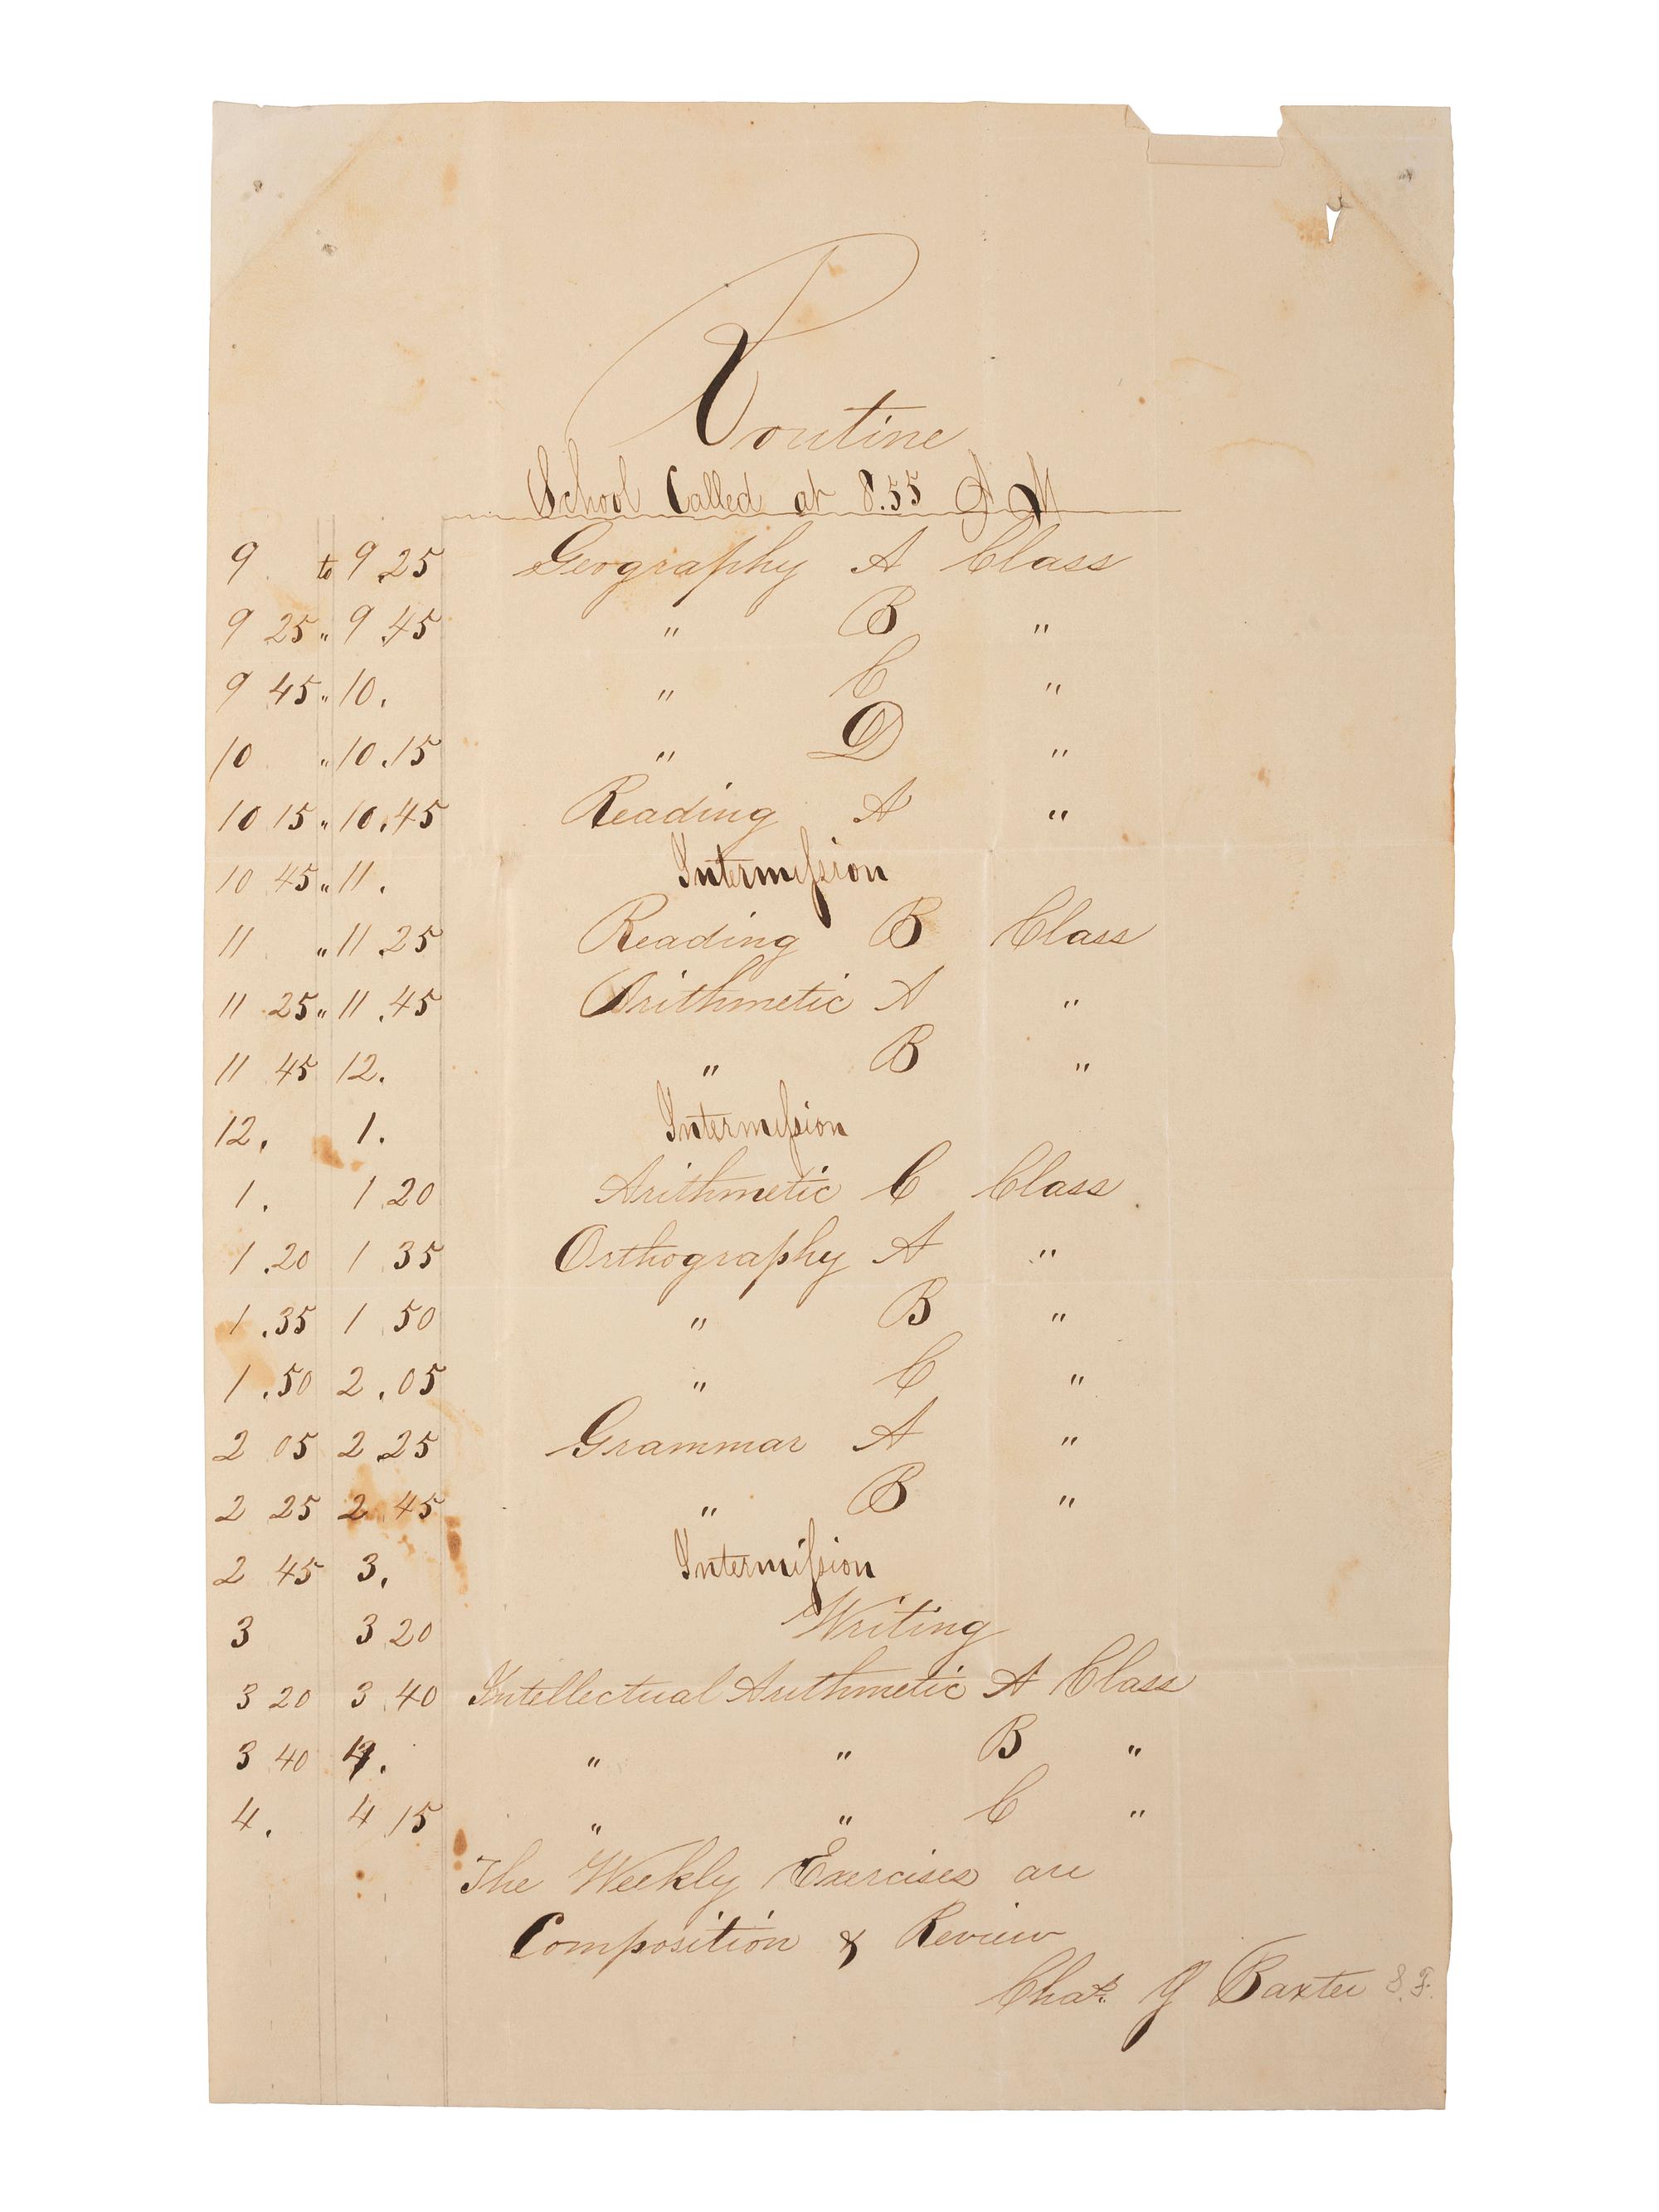 Routine
School Called at 8.55 A M
9. to 9.25 Geography A Class
9 25 " 9.45 " B "
9 45 " 10. " C "
10 " 10.15 " D "
10 15 " 10.45 Reading A "
10 45 " 11. Intermission
11 " 11.25 Reading B Class
11 25 " 11.45 Arithmetic A "
11 45 12. " B "
12. 1. Intermission
1. 1.20 Arithmetic C Class
1.20 1 35 Orthography A "
1.35 1 50 " B "
1.50 2.05 " C "
2 05 2.25 Grammar A "
2 25 2 45 " B "
2 45 3. Intermission
3 3 20 Writing
3 20 3.40 Intellectual Arithmetic A Class
3 40 4. " " B "
4. 4 15 " " C "
The Weekly Exercises are
Composition & Review
Chas. Baxter